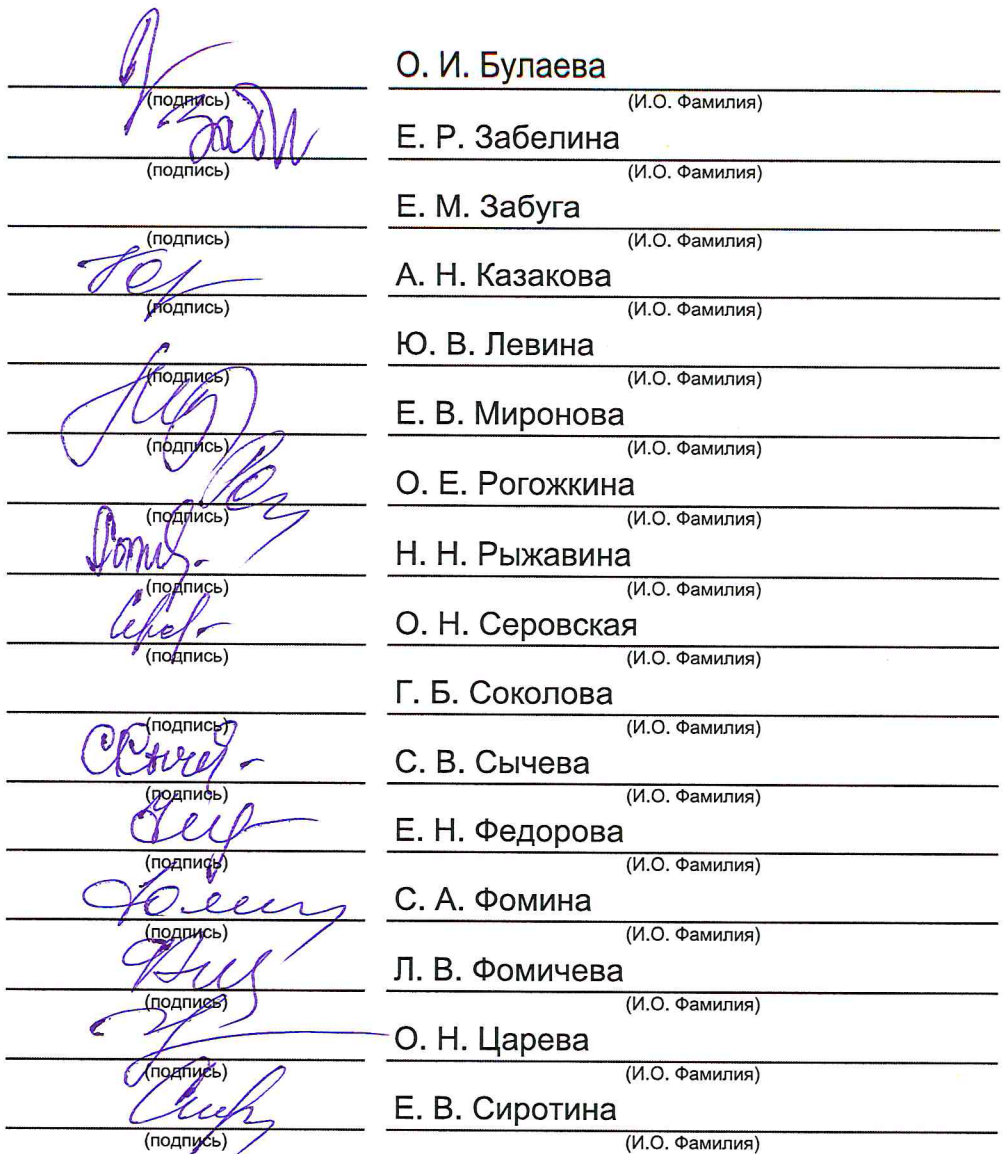 О. И. Булаева
(подпись) (И.О. Фамилия)
Е. Р. Забелина
(подпись) (И.О. Фамилия)
Е. М. Забуга
(подпись) (И.О. Фамилия)
А. Н. Казакова
(подпись) (И.О. Фамилия)
Ю. В. Левина
(подпись) (И.О. Фамилия)
Е. В. Миронова
(подпись) (И.О. Фамилия)
О. Е. Рогожкина
(подпись) (И.О. Фамилия)
Н. Н. Рыжавина
(подпись) (И.О. Фамилия)
О. Н. Серовская
(подпись) (И.О. Фамилия)
Г. Б. Соколова
(подпись) (И.О. Фамилия)
С. В. Сычева
(подпись) (И.О. Фамилия)
Е. Н. Федорова
(подпись) (И.О. Фамилия)
С. А. Фомина
(подпись) (И.О. Фамилия)
Л. В. Фомичева
(подпись) (И.О. Фамилия)
О. Н. Царева
(подпись) (И.О. Фамилия)
Е. В. Сиротина
(подпись) (И.О. Фамилия)